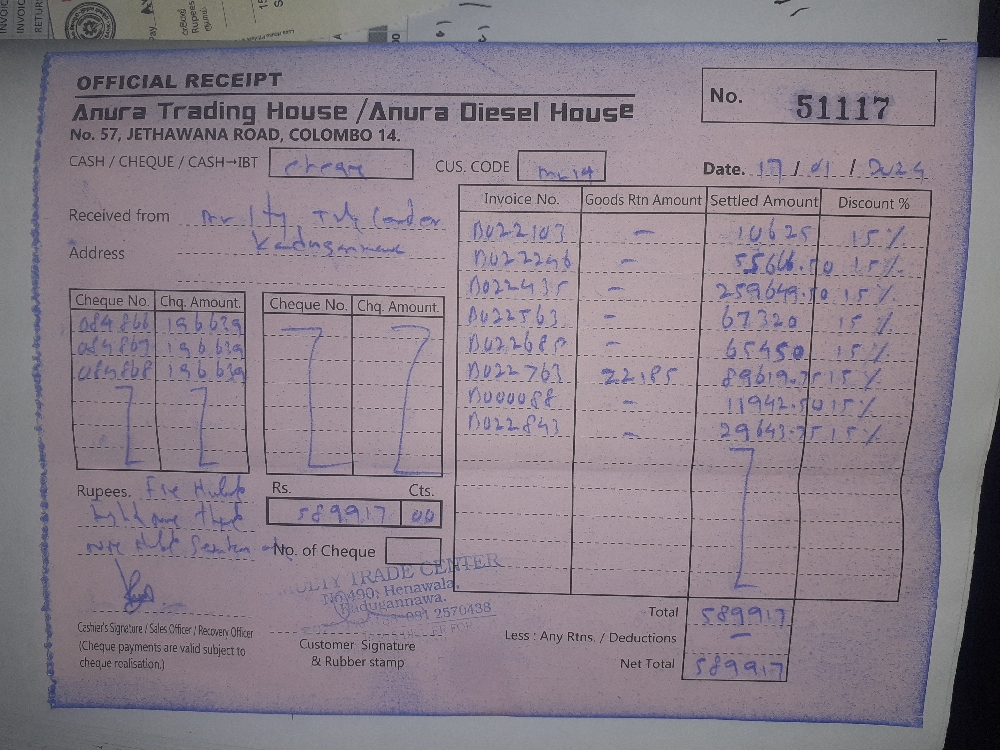 OFFICIAL RECEIPT
Anura Trading House /Anura Diesel House
No. 57, JETHAWANA ROAD, COLOMBO 14.
No. 51117
CASH / CHEQUE / CASH→IBT
CUS. CODE
Date. 17 / 01 /
Received from
Address
Invoice No. Goods Rtn Amount Settled Amount Discount %
D022103 - 10625 15%
- 15%
D022435 - 259649.50 15%
D022563 - 67320 15%
- 65450 15%
D022763 22185 89619.75 15%
D000088 - 11942.50 15%
D022843 - 29643.75 15%
Cheque No. Chq. Amount.
084866 196639
084867 196639
084868 196639
Cheque No. Chq. Amount.
Rupees.
Rs. Cts.
589917 00
No. of Cheque
TRADE CENTER
No,490, Henawala,
Kadugannawa.
2570438
Cashier's Signature / Sales Officer / Recovery Officer
(Cheque payments are valid subject to
cheque realisation.)
Customer Signature
& Rubber stamp
Total 589917
Less : Any Rtns. / Deductions -
Net Total 589917